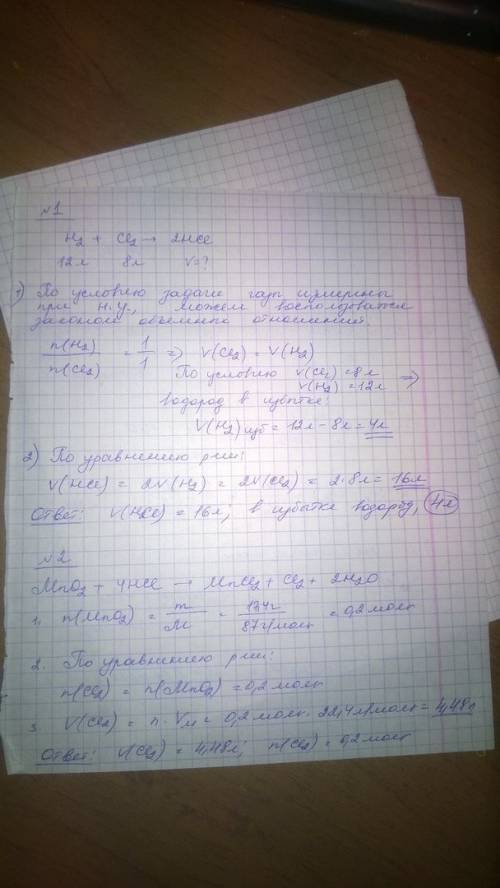 №1
H₂ + Cl₂ → 2HCl
12л 8л V=?
1) По условию задачи газы измерены
при н.у., можем воспользоваться
законом объемных отношений.
n(H₂) / n(Cl₂) = 1/1 => V(Cl₂) = V(H₂)
По условию V(Cl₂) = 8л
V(H₂) = 12л =>
водород в избытке:
V(H₂)изб = 12л – 8л = 4л
2) По уравнению р-ии:
V(HCl) = 2V(H₂) = 2V(Cl₂) = 2·8л = 16л
Ответ: V(HCl) = 16л; в избытке водород, 4л
№2
MnO₂ + 4HCl → MnCl₂ + Cl₂ + 2H₂O
1. n(MnO₂) = m/M = 17,4г / 87г/моль = 0,2 моль
2. По уравнению р-ии:
n(Cl₂) = n(MnO₂) = 0,2 моль
3 V(Cl₂) = n · Vм = 0,2 моль · 22,4 л/моль = 4,48л
Ответ: V(Cl₂) = 4,48л; n(Cl₂) = 0,2 моль